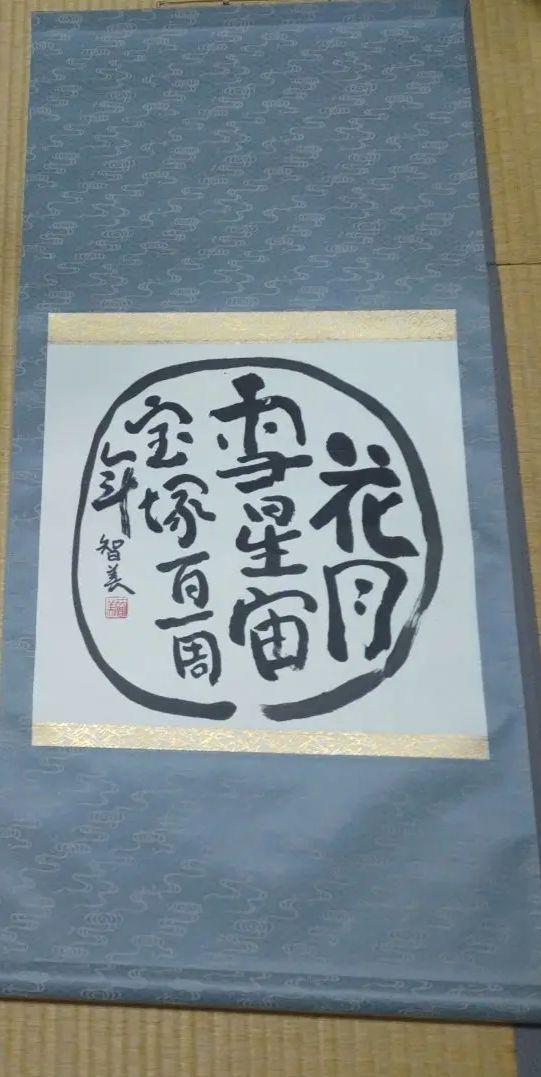 花月
雪星宙
宝塚百一周
年
智美